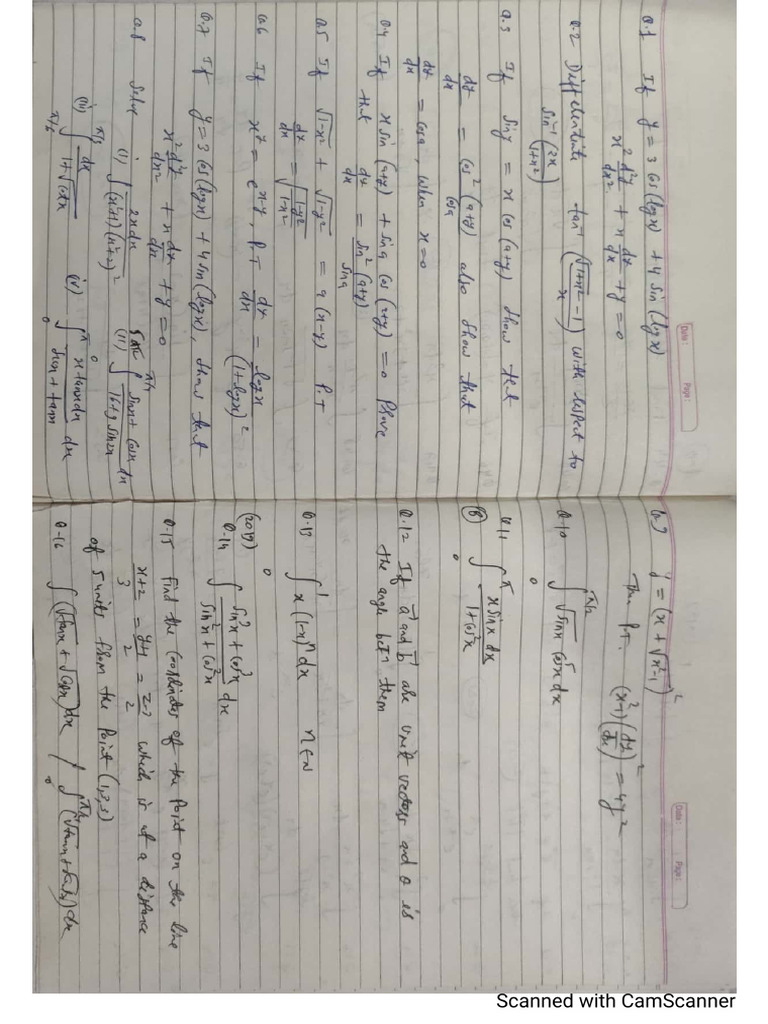 Date: Page:
Q.1 If y = 3 cos (log x) + 4 sin (log x)
x² d²y/dx² + x dy/dx + y = 0
Q.2 Differentiate tan⁻¹ (√(1+x²) - 1 / x) with respect to
sin⁻¹ (2x / (1+x²))
Q.3 If sin y = x cos (a+y) show that
dy/dx = cos² (a+y) / cos a also show that
dy/dx = cos a, when x = 0
Q.4 If x sin (a+y) + sin a cos (a+y) = 0 Prove
that dy/dx = sin² (a+y) / sin a
Q.5 If √(1-x²) + √(1-y²) = a (x-y) P.T
dy/dx = √((1-y²) / (1-x²))
Q.6 If x^y = e^(x-y), P.T dy/dx = log x / (1+log x)²
Q.7 If y = 3 cos (log x) + 4 sin (log x), show that
x² d²y/dx² + x dy/dx + y = 0
Q.8 Solve (i) ∫ 2x dx / (x²+1)(x²+2)² (ii) ∫₀^(π/4) sin x + cos x / 16 + 9 sin 2x dx
(iii) ∫_(π/6)^(π/3) dx / 1+√cot x (iv) ∫₀^π x tan x dx / sec x + tan x dx
Date: Page:
Q.9 y = (x + √(x²-1))²
Then P.T. (x²-1) (dy/dx)² = 4y²
Q.10 ∫₀^(π/2) √sin x cos⁵x dx
Q.11 ∫₀^π x sin x dx / 1+cos²x
Q.12 If a⃗ and b⃗ are unit vectors and θ is
the angle betⁿ them
Q.13 ∫₀^1 x (1-x)ⁿ dx n ∈ N
(2019)
Q.14 ∫ sin³x + cos³x / sin²x + cos²x dx
Q.15 Find the coordinates of the point on the line
x+2 / 3 = y+1 / 2 = z-3 / 2 which is at a distance
of 5 units from the point (1,3,3)
Q.16 ∫ (√tan x + √cot x) dx / ∫₀^(π/2) (√tan x + √cot x) dx
Scanned with CamScanner